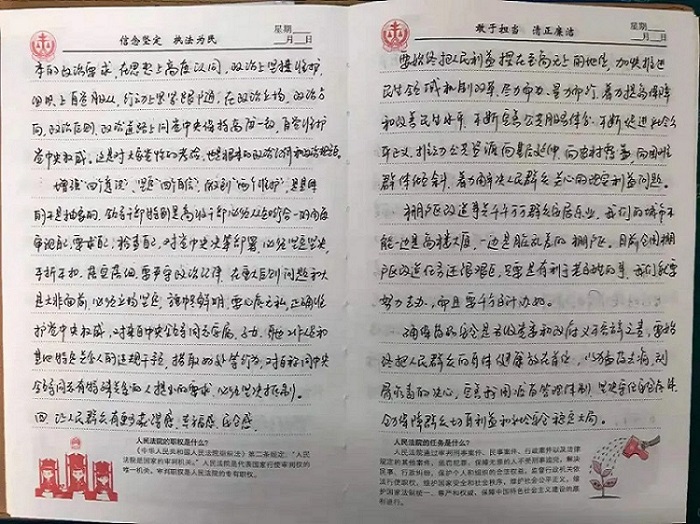 信念坚定 执法为民
星期
月 日
本的政治要求,在思想上高度认同,政治上坚决维护,
组织上自觉服从,行动上紧紧跟随。在政治立场、政治方
向、政治原则、政治道路上同党中央保持高度一致,自觉维护
党中央权威。这是对大是大非的考验,也是根本的政治纪律和政治规矩。
增强“四个意识”、坚定“四个自信”、做到“两个维护”,是具体
的不是抽象的。领导干部特别是高级干部必须从知行合一的角度
审视自己、要求自己、检查自己。对党中央决策部署,必须坚定坚决、
不折不扣、落实落细。要严守政治纪律,在重大原则问题和大
是大非面前,必须立场坚定、旗帜鲜明。要心底无私,正确维
护党中央权威,对来自中央领导同志家属、子女、身边工作人员和
其他特定关系人的违规干预、捞取好处等行为,对自称同中央
领导同志有特殊关系的人提出的要求,必须坚决抵制。
四、让人民群众有更多获得感、幸福感、安全感。
人民法院的职权是什么?
《中华人民共和国人民法院组织法》第二条规定:“人民
法院是国家的审判机关。”人民法院是代表国家行使审判权的
唯一机关。审判职权是人民法院的专有职权。
敢于担当 清正廉洁
星期
月 日
要始终把人民利益摆在至高无上的地位,加快推进
民生领域体制改革,尽力而为、量力而行,着力提高保障
和改善民生水平,不断完善公共服务体系,不断促进社会公
平正义,推动公共资源向基层延伸、向农村覆盖、向困难
群体倾斜,着力解决人民群众关心的现实利益问题。
棚户区改造事关千千万万群众安居乐业。我们的城市不
能一边是高楼大厦,一边是脏乱差的棚户区。目前全国棚
户区改造任务还很艰巨。只要是有利于老百姓的事,我们就要
努力去办,而且要千方百计办好。
确保药品安全是各级党委和政府义不容辞之责,要始
终把人民群众的身体健康放在首位,以猛药去疴、刮
骨疗毒的决心,完善我国疫苗管理体制,坚决守住安全底线,
全力保障群众切身利益和社会安全稳定大局。
人民法院的任务是什么?
人民法院通过审判刑事案件、民事案件、行政案件以及法律
规定的其他案件,惩罚犯罪,保障无罪的人不受刑事追究,解决
民事、行政纠纷,保护个人和组织的合法权益,监督行政机关依
法行使职权,维护国家安全和社会秩序,维护社会公平正义,维
护国家法制统一、尊严和权威,保障中国特色社会主义建设的顺
利进行。